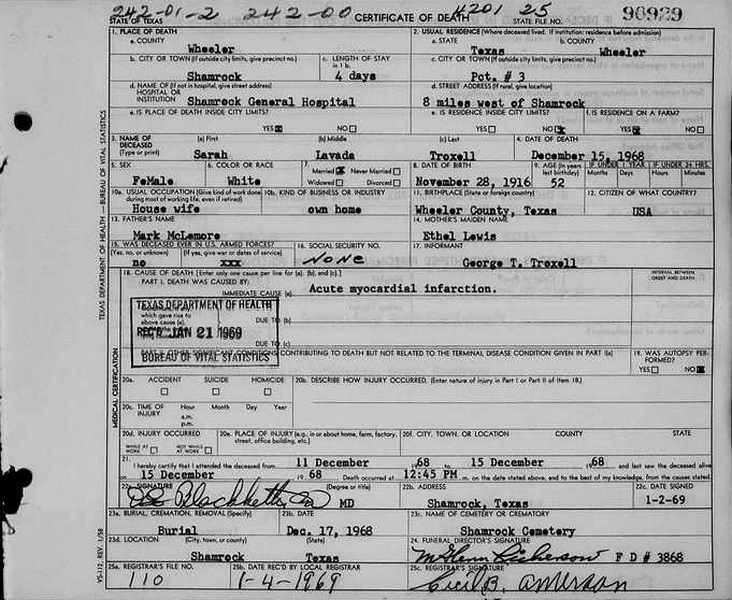 242-01-2 242-00 4201 25
STATE OF TEXAS CERTIFICATE OF DEATH STATE FILE NO. 90929
1. PLACE OF DEATH 2. USUAL RESIDENCE (Where deceased lived. If institution: residence before admission)
a. COUNTY Wheeler a. STATE Texas b. COUNTY Wheeler
b. CITY OR TOWN (If outside city limits, give precinct no.) c. LENGTH OF STAY in 1 b. c. CITY OR TOWN (If outside city limits, give precinct no.)
Shamrock 4 days Pct. # 3
d. NAME OF (If not in hospital, give street address) d. STREET ADDRESS (If rural, give location)
HOSPITAL OR INSTITUTION Shamrock General Hospital 8 miles west of Shamrock
e. IS PLACE OF DEATH INSIDE CITY LIMITS? e. IS RESIDENCE INSIDE CITY LIMITS? f. IS RESIDENCE ON A FARM?
YES NO YES NO YES NO
3. NAME OF DECEASED (a) First (b) Middle (c) Last 4. DATE OF DEATH
(Type or print) Sarah Lavada Troxell December 15, 1968
5. SEX 6. COLOR OR RACE 7. Married Never Married 8. DATE OF BIRTH 9. AGE (In years last birthday) IF UNDER 1 YEAR IF UNDER 24 HRS.
Months Days Hours Minutes
FeMale White Widowed Divorced November 28, 1916 52
10a. USUAL OCCUPATION (Give kind of work done during most of working life, even if retired) 10b. KIND OF BUSINESS OR INDUSTRY 11. BIRTHPLACE (State or foreign country) 12. CITIZEN OF WHAT COUNTRY?
House wife own home Wheeler County, Texas USA
13. FATHER'S NAME 14. MOTHER'S MAIDEN NAME
Mark McLemore Ethel Lewis
15. WAS DECEASED EVER IN U.S. ARMED FORCES? 16. SOCIAL SECURITY NO. 17. INFORMANT
(Yes, no, or unknown) (If yes, give war or dates of service)
no xxx NONE George T. Troxell
18. CAUSE OF DEATH [Enter only one cause per line for (a), (b), and (c).] INTERVAL BETWEEN ONSET AND DEATH
PART I. DEATH WAS CAUSED BY:
IMMEDIATE CAUSE (a) Acute myocardial infarction.
TEXAS DEPARTMENT OF HEALTH
which gave rise to above cause (a), DUE TO (b)
REC'D JAN 21 1969
DUE TO (c)
BUREAU OF VITAL STATISTICS
PART II. OTHER SIGNIFICANT CONDITIONS CONTRIBUTING TO DEATH BUT NOT RELATED TO THE TERMINAL DISEASE CONDITION GIVEN IN PART I(a) 19. WAS AUTOPSY PERFORMED?
YES NO
20a. ACCIDENT SUICIDE HOMICIDE 20b. DESCRIBE HOW INJURY OCCURRED. (Enter nature of injury in Part I or Part II of item 18.)
20c. TIME OF INJURY Hour Month Day Year
a.m.
p.m.
20d. INJURY OCCURRED 20e. PLACE OF INJURY (e.g., in or about home, farm, factory, street, office building, etc.) 20f. CITY, TOWN, OR LOCATION COUNTY STATE
WHILE AT WORK NOT WHILE AT WORK
21. I hereby certify that I attended the deceased from 11 December 1968 to 15 December 1968 and last saw the deceased alive
on 15 December 1968 Death occurred at 12:45 PM m. on the date stated above, and to the best of my knowledge, from the causes stated.
22a. SIGNATURE (Degree or title) 22b. ADDRESS 22c. DATE SIGNED
MD Shamrock, Texas 1-2-69
23a. BURIAL, CREMATION, REMOVAL (Specify) 23b. DATE 23c. NAME OF CEMETERY OR CREMATORY
Burial Dec. 17, 1968 Shamrock Cemetery
23d. LOCATION (City, town, or county) (State) 24. FUNERAL DIRECTOR'S SIGNATURE
Shamrock Texas F D # 3868
25a. REGISTRAR'S FILE NO. 25b. DATE REC'D BY LOCAL REGISTRAR 25c. REGISTRAR'S SIGNATURE
110 1-4-1969 Cecil B.
TEXAS DEPARTMENT OF HEALTH — BUREAU OF VITAL STATISTICS
MEDICAL CERTIFICATION
VS-112, REV. 1/58